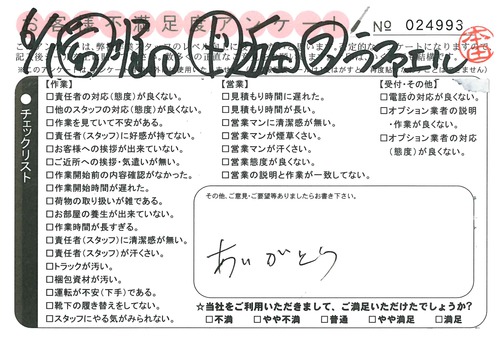 お客様不満足度アンケート
No 024993
【作業】
□責任者の対応(態度)が良くない。
□他のスタッフの対応(態度)が良くない。
□作業を見ていて不安がある。
□責任者(スタッフ)に好感が持てない。
□お客様への挨拶が出来ていない。
□ご近所への挨拶・気遣いが無い。
□作業開始前の内容確認がなかった。
□作業開始時間が遅れた。
□荷物の取り扱いが雑である。
□お部屋の養生が出来ていない。
□作業時間が長すぎる。
□責任者(スタッフ)に清潔感が無い。
□責任者(スタッフ)が汗くさい。
□トラックが汚い。
□梱包資材が汚い。
□運転が不安(下手)である。
□靴下の履き替えをしてない。
□スタッフにやる気がみられない。
【営業】
□見積もり時間に遅れた。
□見積もり時間が長い。
□営業マンに清潔感が無い。
□営業マンが煙草くさい。
□営業マンが汗くさい。
□営業態度が良くない。
□営業の説明と作業が一致してない。
【受付・その他】
□電話の対応が良くない。
□オプション業者の説明
・作業が良くない。
□オプション業者の対応
(態度)が良くない。
チェックリスト
その他、ご意見・ご要望等ありましたらお書き下さい。
ありがとう
☆当社をご利用いただきまして、ご満足いただけたでしょうか?
□不満 □やや不満 □普通 □やや満足 □満足